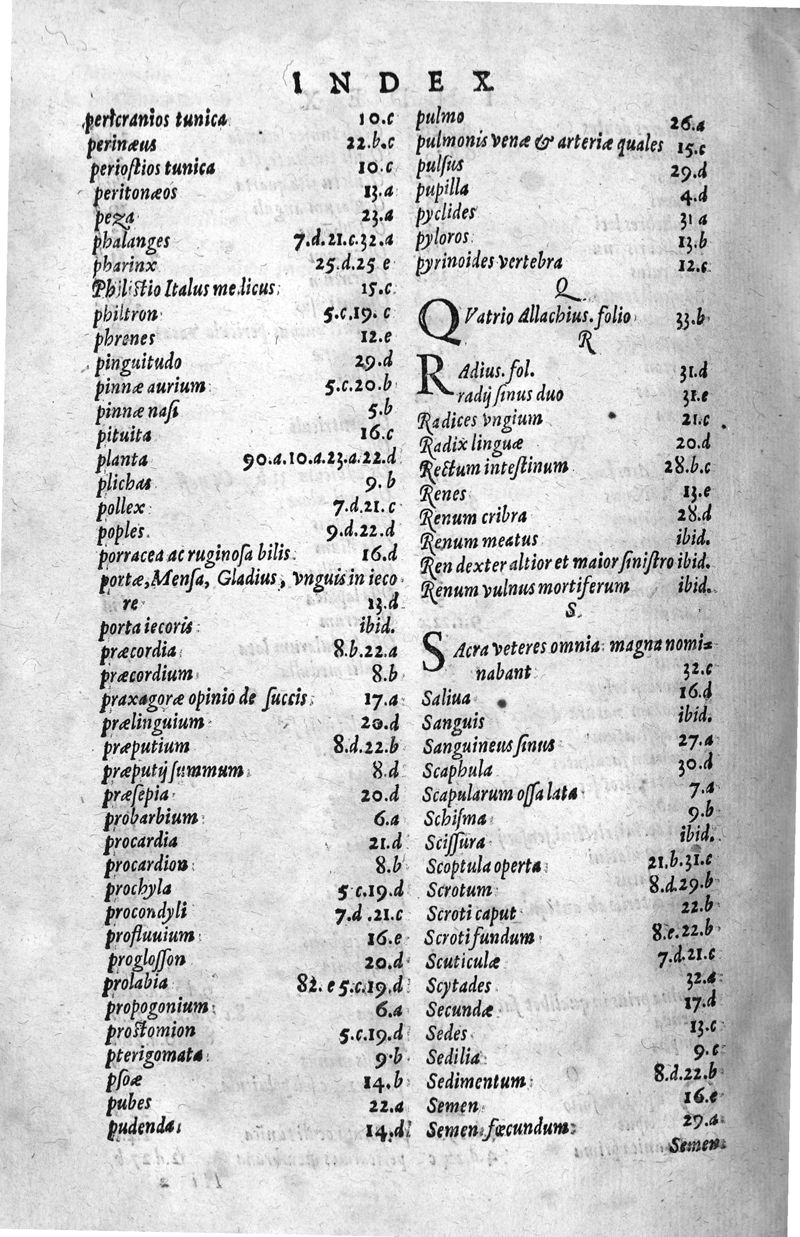 INDEX
pericranios tunica 10.c
perinæus 22.b.c
periostios tunica 10.c
peritonæos 13.a
peza 23.a
phalanges 7.d.21.c.32.a
pharinx 25.d.25 e
Philistio Italus medicus 15.c
philtron 5.c.19. c
phrenes 12.e
pinguitudo 29.d
pinnæ aurium 5.c.20.b
pinnæ nasi 5.b
pituita 16.c
planta 90.a.10.a.23.a.22.d
plichas 9.b
pollex 7.d.21.c
poples 9.d.22.d
porracea ac ruginosa bilis 16.d
portæ, Mensa, Gladius, vnguis in ieco
re 13.d
porta iecoris ibid.
præcordia 8.b.22.a
præcordium 8.b
praxagoræ opinio de succis 17.a
prælinguium 20.d
præputium 8.d.22.b
præputij summum 8.d
præsepia 20.d
probarbium 6.a
procardia 21.d
procardion 8.b
prochyla 5 c.19.d
procondyli 7.d .21.c
profluuium 16.e
proglosson 20.d
prolabia 82. e 5.c.19.d
propogonium 6.a
prostomion 5.c.19.d
pterigomata 9.b
psoæ 14.b
pubes 22.a
pudenda 14.d
pulmo 26.a
pulmonis venæ & arteriæ quales 15.c
pulsus 29.d
pupilla 4.d
pyclides 31 a
pyloros 13.b
pyrinoides vertebra 12.c
Q
QVatrio Allachius. folio 33.b
R
RAdius. fol. 31.d
radij sinus duo 31.e
Radices vngium 21.c
Radix linguæ 20.d
Rectum intestinum 28.b.c
Renes 13.e
Renum cribra 28.d
Renum meatus ibid.
Ren dexter altior et maior sinistro ibid.
Renum vulnus mortiferum ibid.
S.
SAcra veteres omnia magna nomi=
nabant 32.c
Saliua 16.d
Sanguis ibid.
Sanguineus sinus 27.a
Scaphula 30.d
Scapularum ossa lata 7.a
Schisma 9.b
Scissura ibid.
Scoptula operta 21.b.31.c
Scrotum 8.d.29.b
Scroti caput 22.b
Scroti fundum 8.e.22.b
Scuticulæ 7.d.21.c
Scytades 32.a
Secundæ 17.d
Sedes 13.c
Sedilia 9.c
Sedimentum 8.d.22.b
Semen 16.e
Semen fœcundum 29.a
Semen